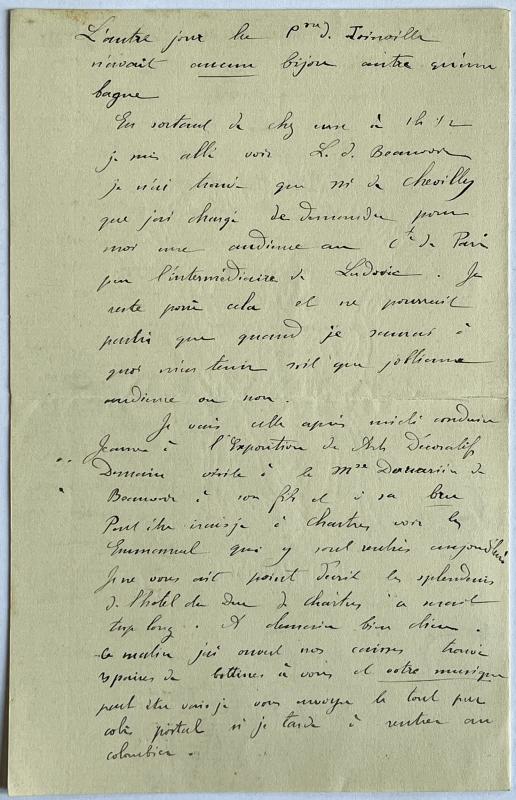 L'autre jour la Pesse d. Joinville
n'avait aucun bijou autre qu'une
bague
En sortant de chez vous à 1h 1/2
je suis allé voir L. d. Beauvoir
je n'ai trouvé que Mr de Chevilly
que j'ai chargé de demander pour
moi une audience au Cte de Paris
par l'intermédiaire de Ludovic. Je
reste pour cela et ne pourrait
partir que quand je saurai à
quoi m'en tenir soit que j'obtienne
audience ou non.
Je vais cette après midi conduire
Jeanne à l'Exposition des Arts Décoratifs
Demain visite à la Mise de
Beauvoir à son fils et à sa bru
Peut être irais je à Chartres voir les
Emmanuel qui y sont rentrés aujourd'hui
Je ne vous ait point décrit les splendeurs
de l'hôtel du Duc de Chartres ça serait
trop long. A demain bien chère.
Ce matin j'ai ouvert nos caisses trouvé
paires de bottines à vous et votre musique
peut être vais je vous envoyer le tout par
colis postal si je tarde à rentrer au
colombier.